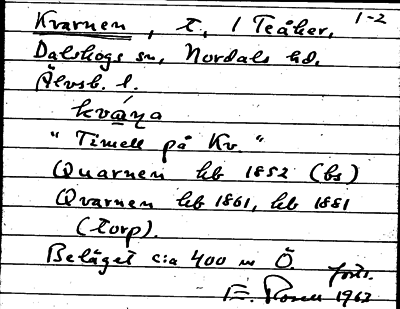 1-2
Kvarnen, t., 1 Teåker,
Dalskogs sn, Nordals hd,
Älvsb. l.
kvάṇa
"Timell på Kv."
Quarnen hb 1852 (bs)
Qvarnen hb 1861, hb 1881
(torp).
Beläget c:a 400 m Ö.
forts.
E. Rosell 1963